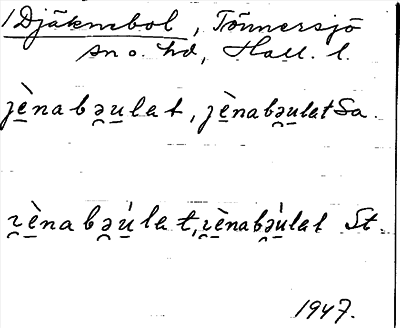 Djäknebol, Tönnersjö
sn o. hd, Hall. l.
jè̱nabə̯u̱lat, jè̱nabə̯u̱lat Sa.
ɪ̯è̱nabə̯ú̱lat, ɪ̯è̱nabə̯ú̱lat St.
1947.